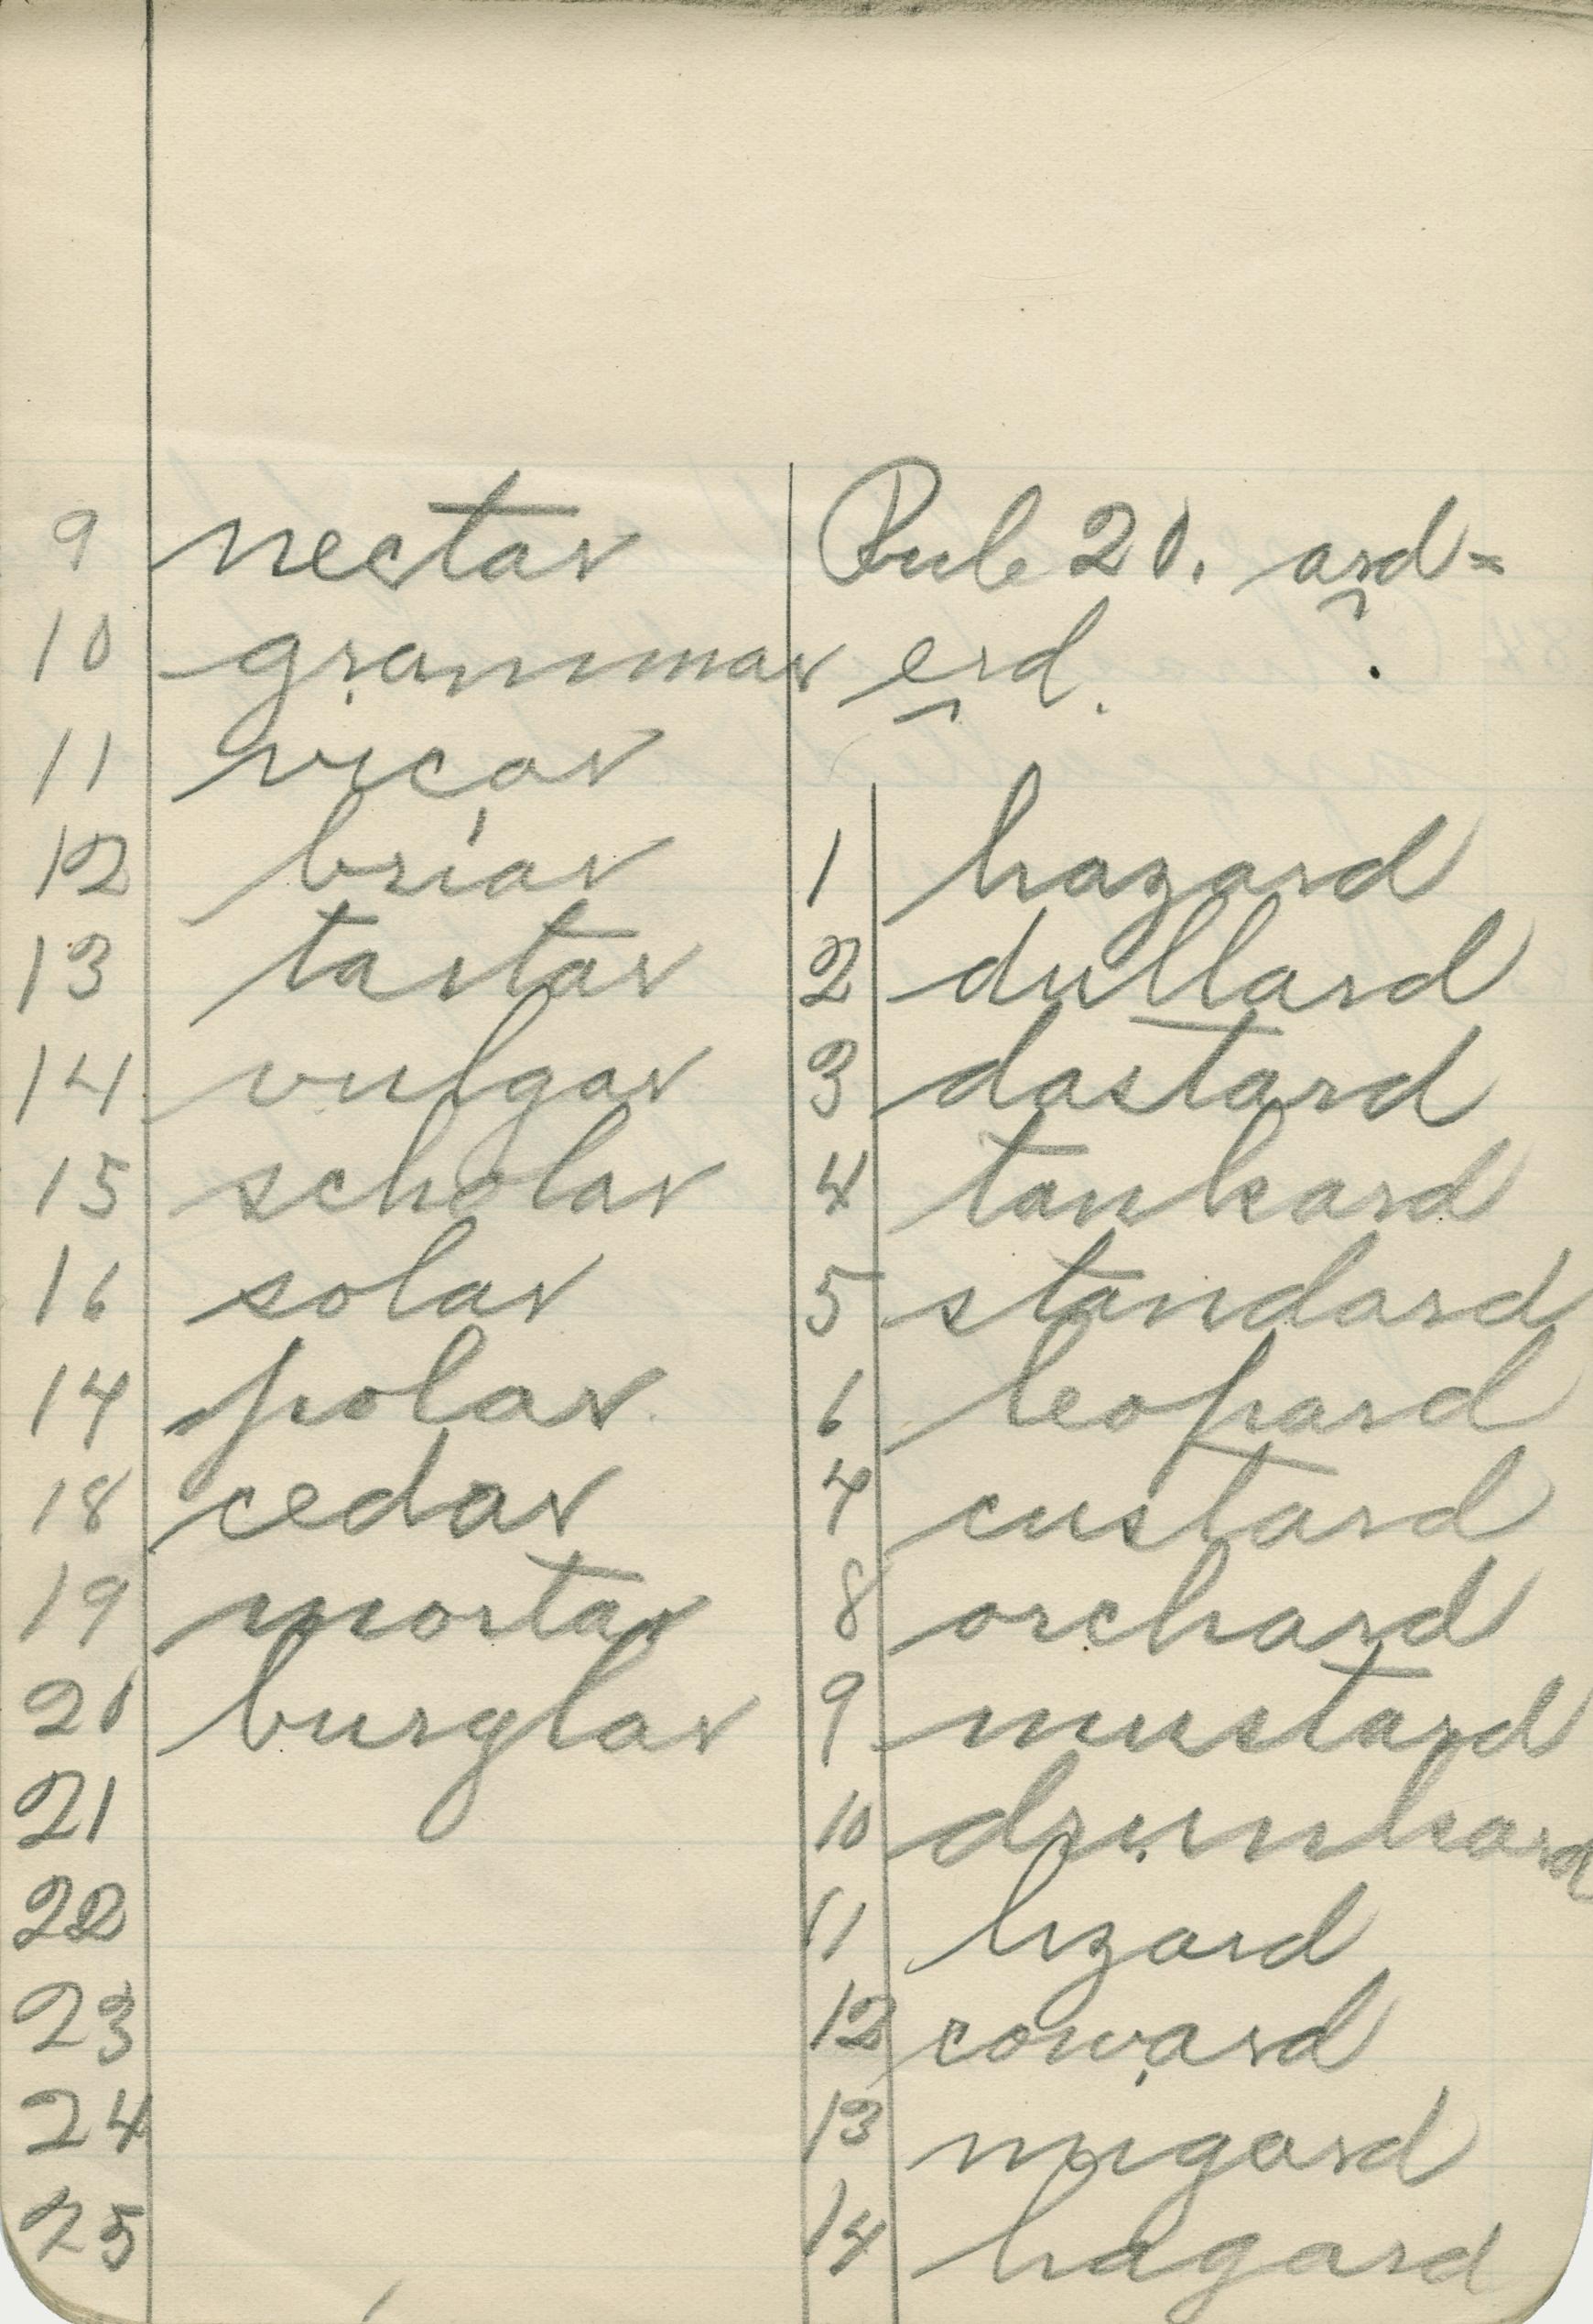 9 nectar
10 grammar
11 vicar
12 briar
13 tartar
14 vulgar
15 scholar
16 solar
17 polar
18 cedar
19 mortar
20 burglar
21
22
23
24
25
Rule 20. ard=
erd.
1 hazard
2 dullard
3 dastard
4 tankard
5 standard
6 leopard
7 custard
8 orchard
9 mustard
10 drunkard
11 lizard
12 coward
13 nigard
14 hagard